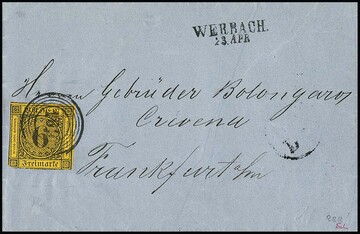 WERBACH.
23. APR
Herrn Gebrüder Bolongaro
Crevena
Frankfurt a/m
6
Freimarke